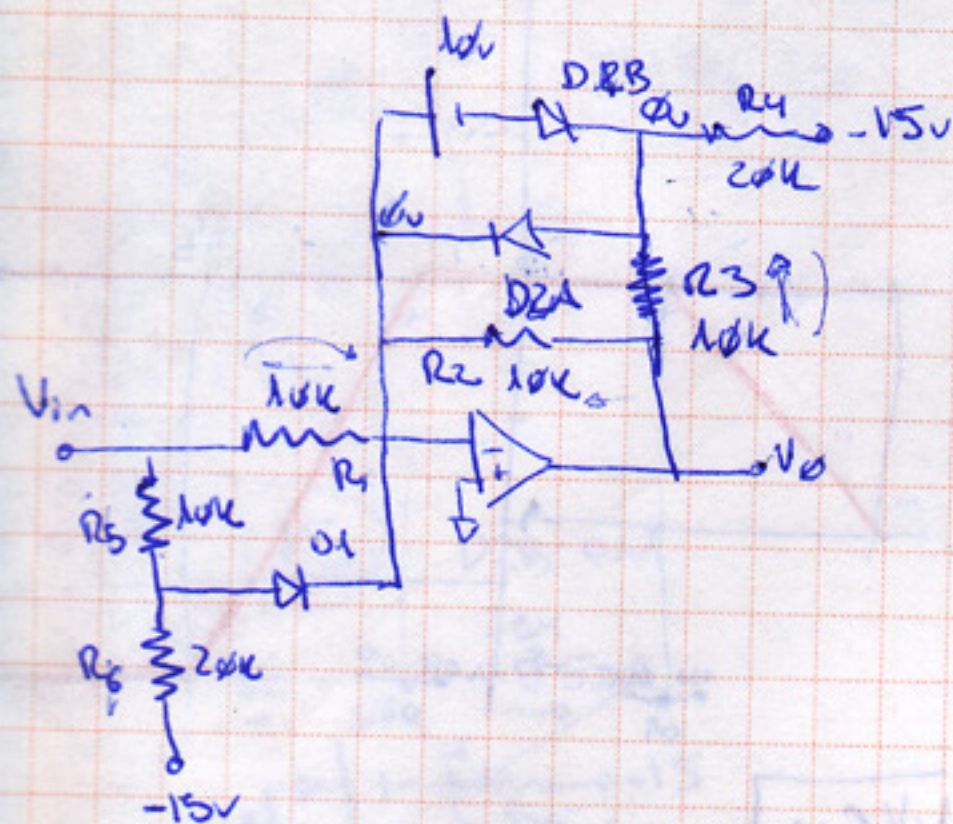 10v
D2B
0v
R4
-15v
20K
0v
D2A
R3
10K
R2 10K
10K
Vin
R1
-
+
V0
R5
10K
D1
R6
20K
-15v